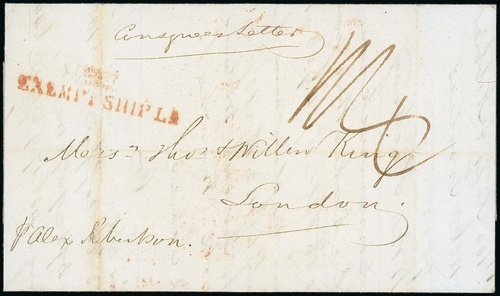 Consignees Letter
EXEMPT SHIP LR
Messrs Thos & Willm King
London.
p Alex Robertson.